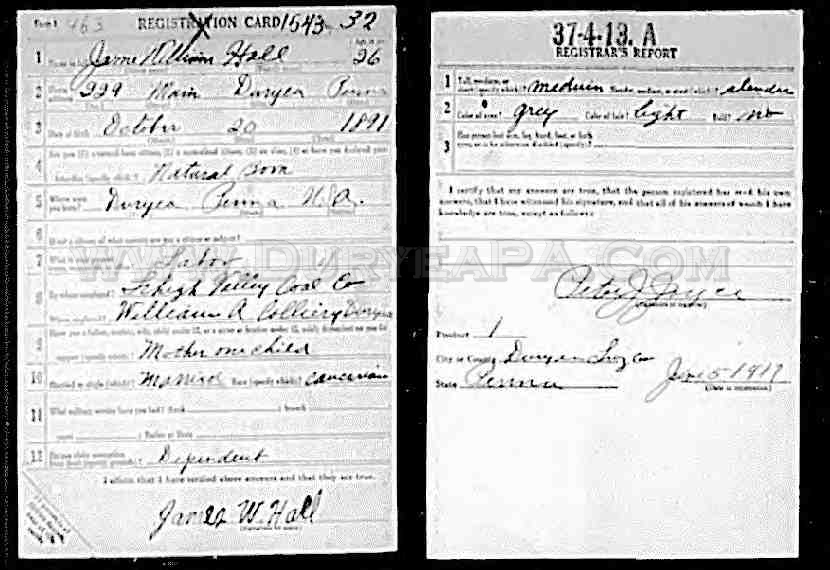 Form 1 463 REGISTRATION CARD 1543 32
1 James William Hall 26
2 229 Main Duryea Penna
3 Date of birth October 20 1891
4 Are you (1) a natural-born citizen, (2) a naturalized citizen, (3) an alien, (4) or have you declared your
intention (specify which)? Natural Born
5 Where were you born? Duryea Penna U.S.A.
6 If not a citizen, of what country are you a citizen or subject?
7 What is your present Labor
8 By whom employed? Lehigh Valley Coal Co
Where employed? William A Colliery Duryea
9 Have you a father, mother, wife, child under 12, or a sister or brother under 12, solely dependent on you for
support (specify which)? Mother one child
10 Married or single (which)? Married Race (specify which)? Caucasian
11 What military service have you had? Rank branch
years Nation or State
12 Do you claim exemption from draft (specify grounds)? Dependent
I affirm that I have verified above answers and that they are true.
James W. Hall
37-4-13. A
REGISTRAR'S REPORT
1 Tall, medium, or short (specify which)? medium Slender, medium, or stout (which)? slender
2 Color of eyes? grey Color of hair? light Bald? no
3 Has person lost arm, leg, hand, foot, or both
eyes, or is he otherwise disabled (specify)?
I certify that my answers are true, that the person registered has read his own
answers, that I have witnessed his signature, and that all of his answers of which I have
knowledge are true, except as follows:
www.DuryeaPA.com
Peter J Joyce
(Signature of registrar)
Precinct 1
City or County Duryea Luz Co
State Penna June 5-1917
(Date of registration)